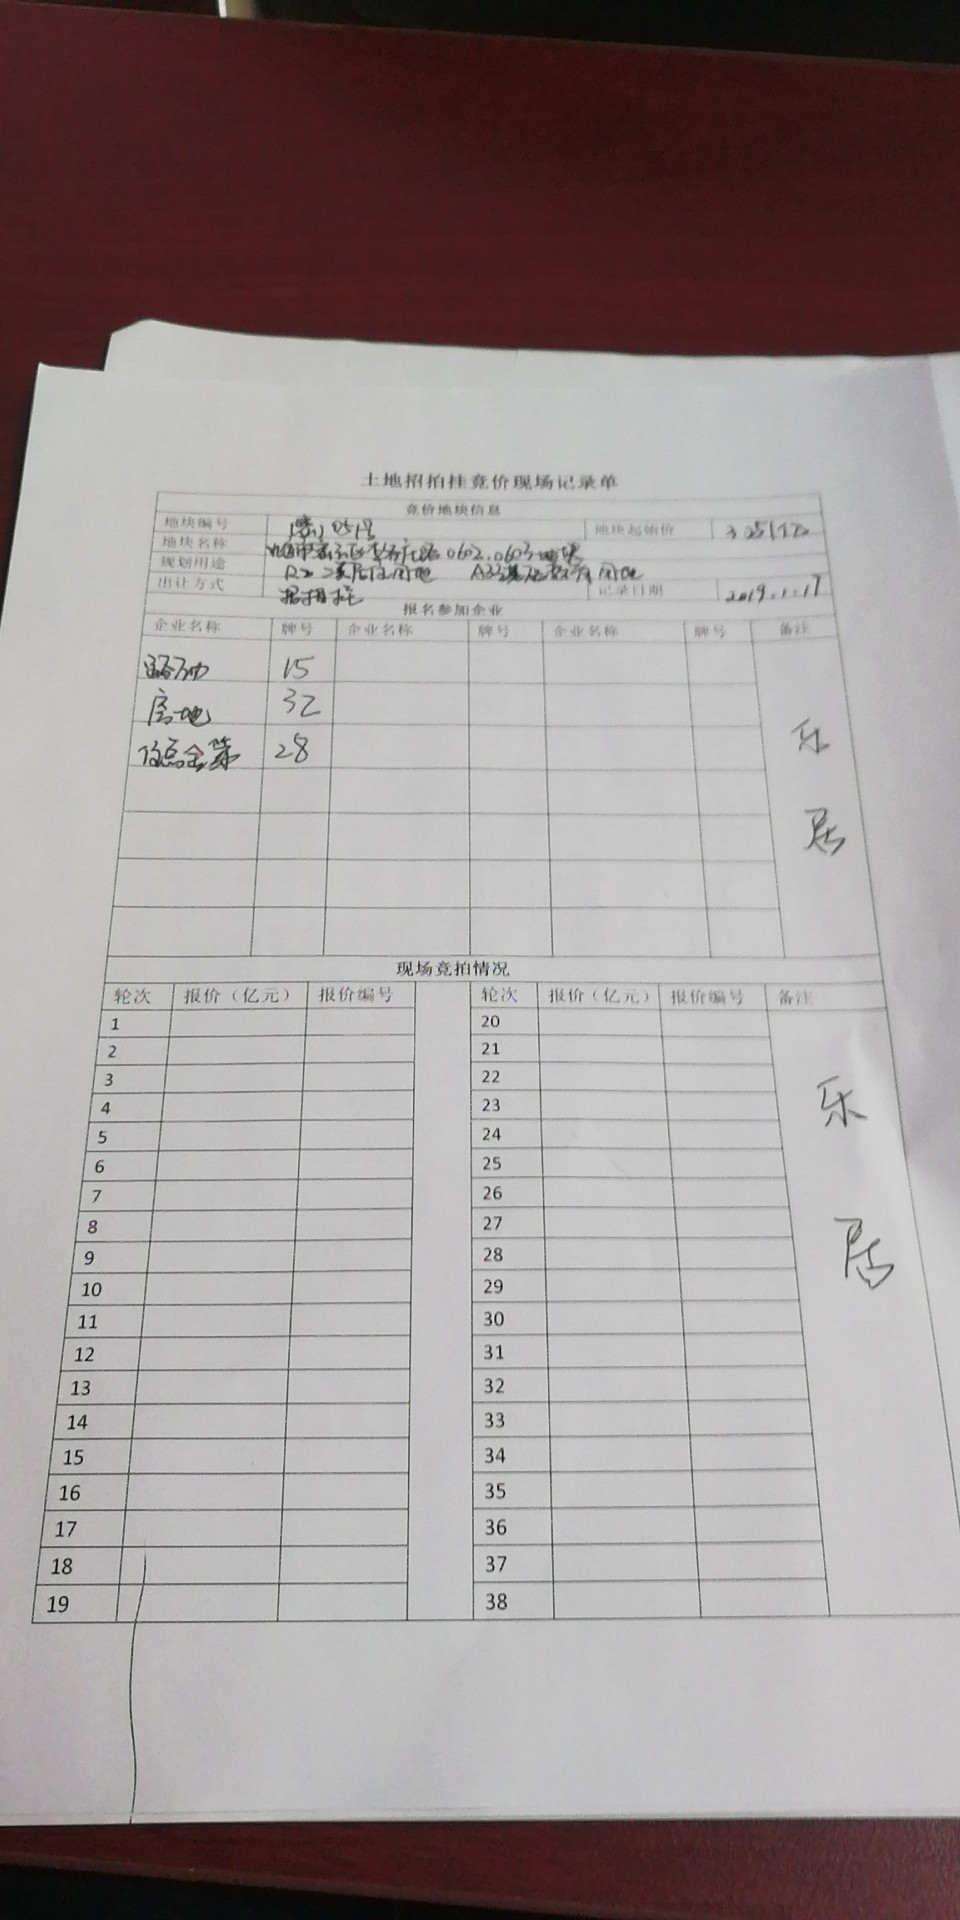 土地招拍挂竞价现场记录单
竞价地块信息
地块编号 051号 地块起始价 3.25亿元
地块名称 0602、0603地块
规划用途 R2二类居住用地 A33基础教育用地
出让方式 招拍挂 记录日期 2019.1.17
报名参加企业
企业名称 牌号 企业名称 牌号 企业名称 牌号 备注
15
房地 32
28
乐
居
现场竞拍情况
轮次 报价(亿元) 报价编号 轮次 报价(亿元) 报价编号 备注
1 20
2 21
3 22
4 23
5 24
6 25
7 26
8 27
9 28
10 29
11 30
12 31
13 32
14 33
15 34
16 35
17 36
18 37
19 38
乐
居